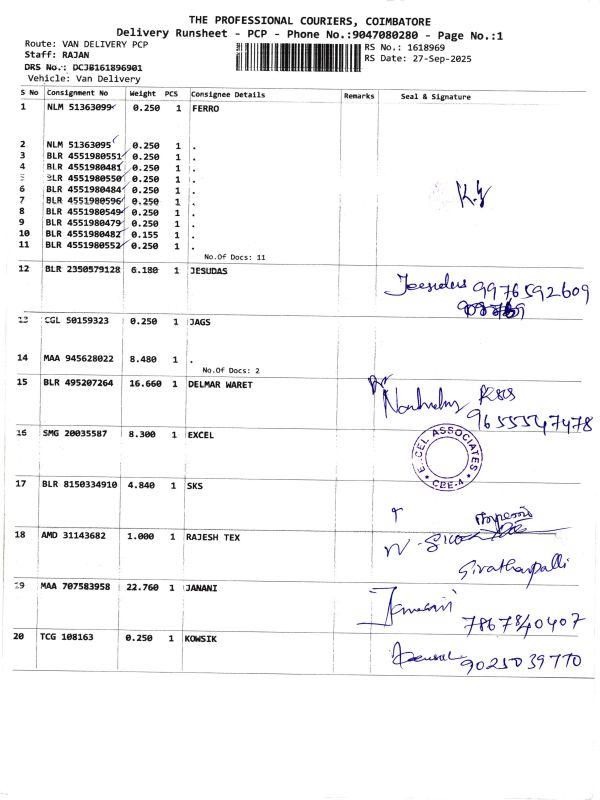 THE PROFESSIONAL COURIERS, COIMBATORE
Delivery Runsheet - PCP - Phone No.:9047080280 - Page No.:1
Route: VAN DELIVERY PCP
Staff: RAJAN
DRS No.: DCJB161896901
Vehicle: Van Delivery
RS No.: 1618969
RS Date: 27-Sep-2025
S No Consignment No Weight PCS Consignee Details Remarks Seal & Signature
1 NLM 51363099 0.250 1 FERRO
2 NLM 51363095 0.250 1 .
3 BLR 4551980551 0.250 1 .
4 BLR 4551980481 0.250 1 .
5 BLR 4551980550 0.250 1 .
6 BLR 4551980484 0.250 1 .
7 BLR 4551980596 0.250 1 .
8 BLR 4551980549 0.250 1 .
9 BLR 4551980479 0.250 1 .
10 BLR 4551980482 0.155 1 .
11 BLR 4551980552 0.250 1 .
No.Of Docs: 11
12 BLR 2350579128 6.180 1 JESUDAS
9976592609
13 CGL 50159323 0.250 1 JAGS
14 MAA 945628022 8.480 1 .
No.Of Docs: 2
15 BLR 495207264 16.660 1 DELMAR WARET
9655547478
16 SMG 20035587 8.300 1 EXCEL
EXCEL ASSOCIATES
* CBE-4 *
17 BLR 8150334910 4.840 1 SKS
18 AMD 31143682 1.000 1 RAJESH TEX
19 MAA 707583958 22.760 1 JANANI
7867840407
20 TCG 108163 0.250 1 KOWSIK
9025039770